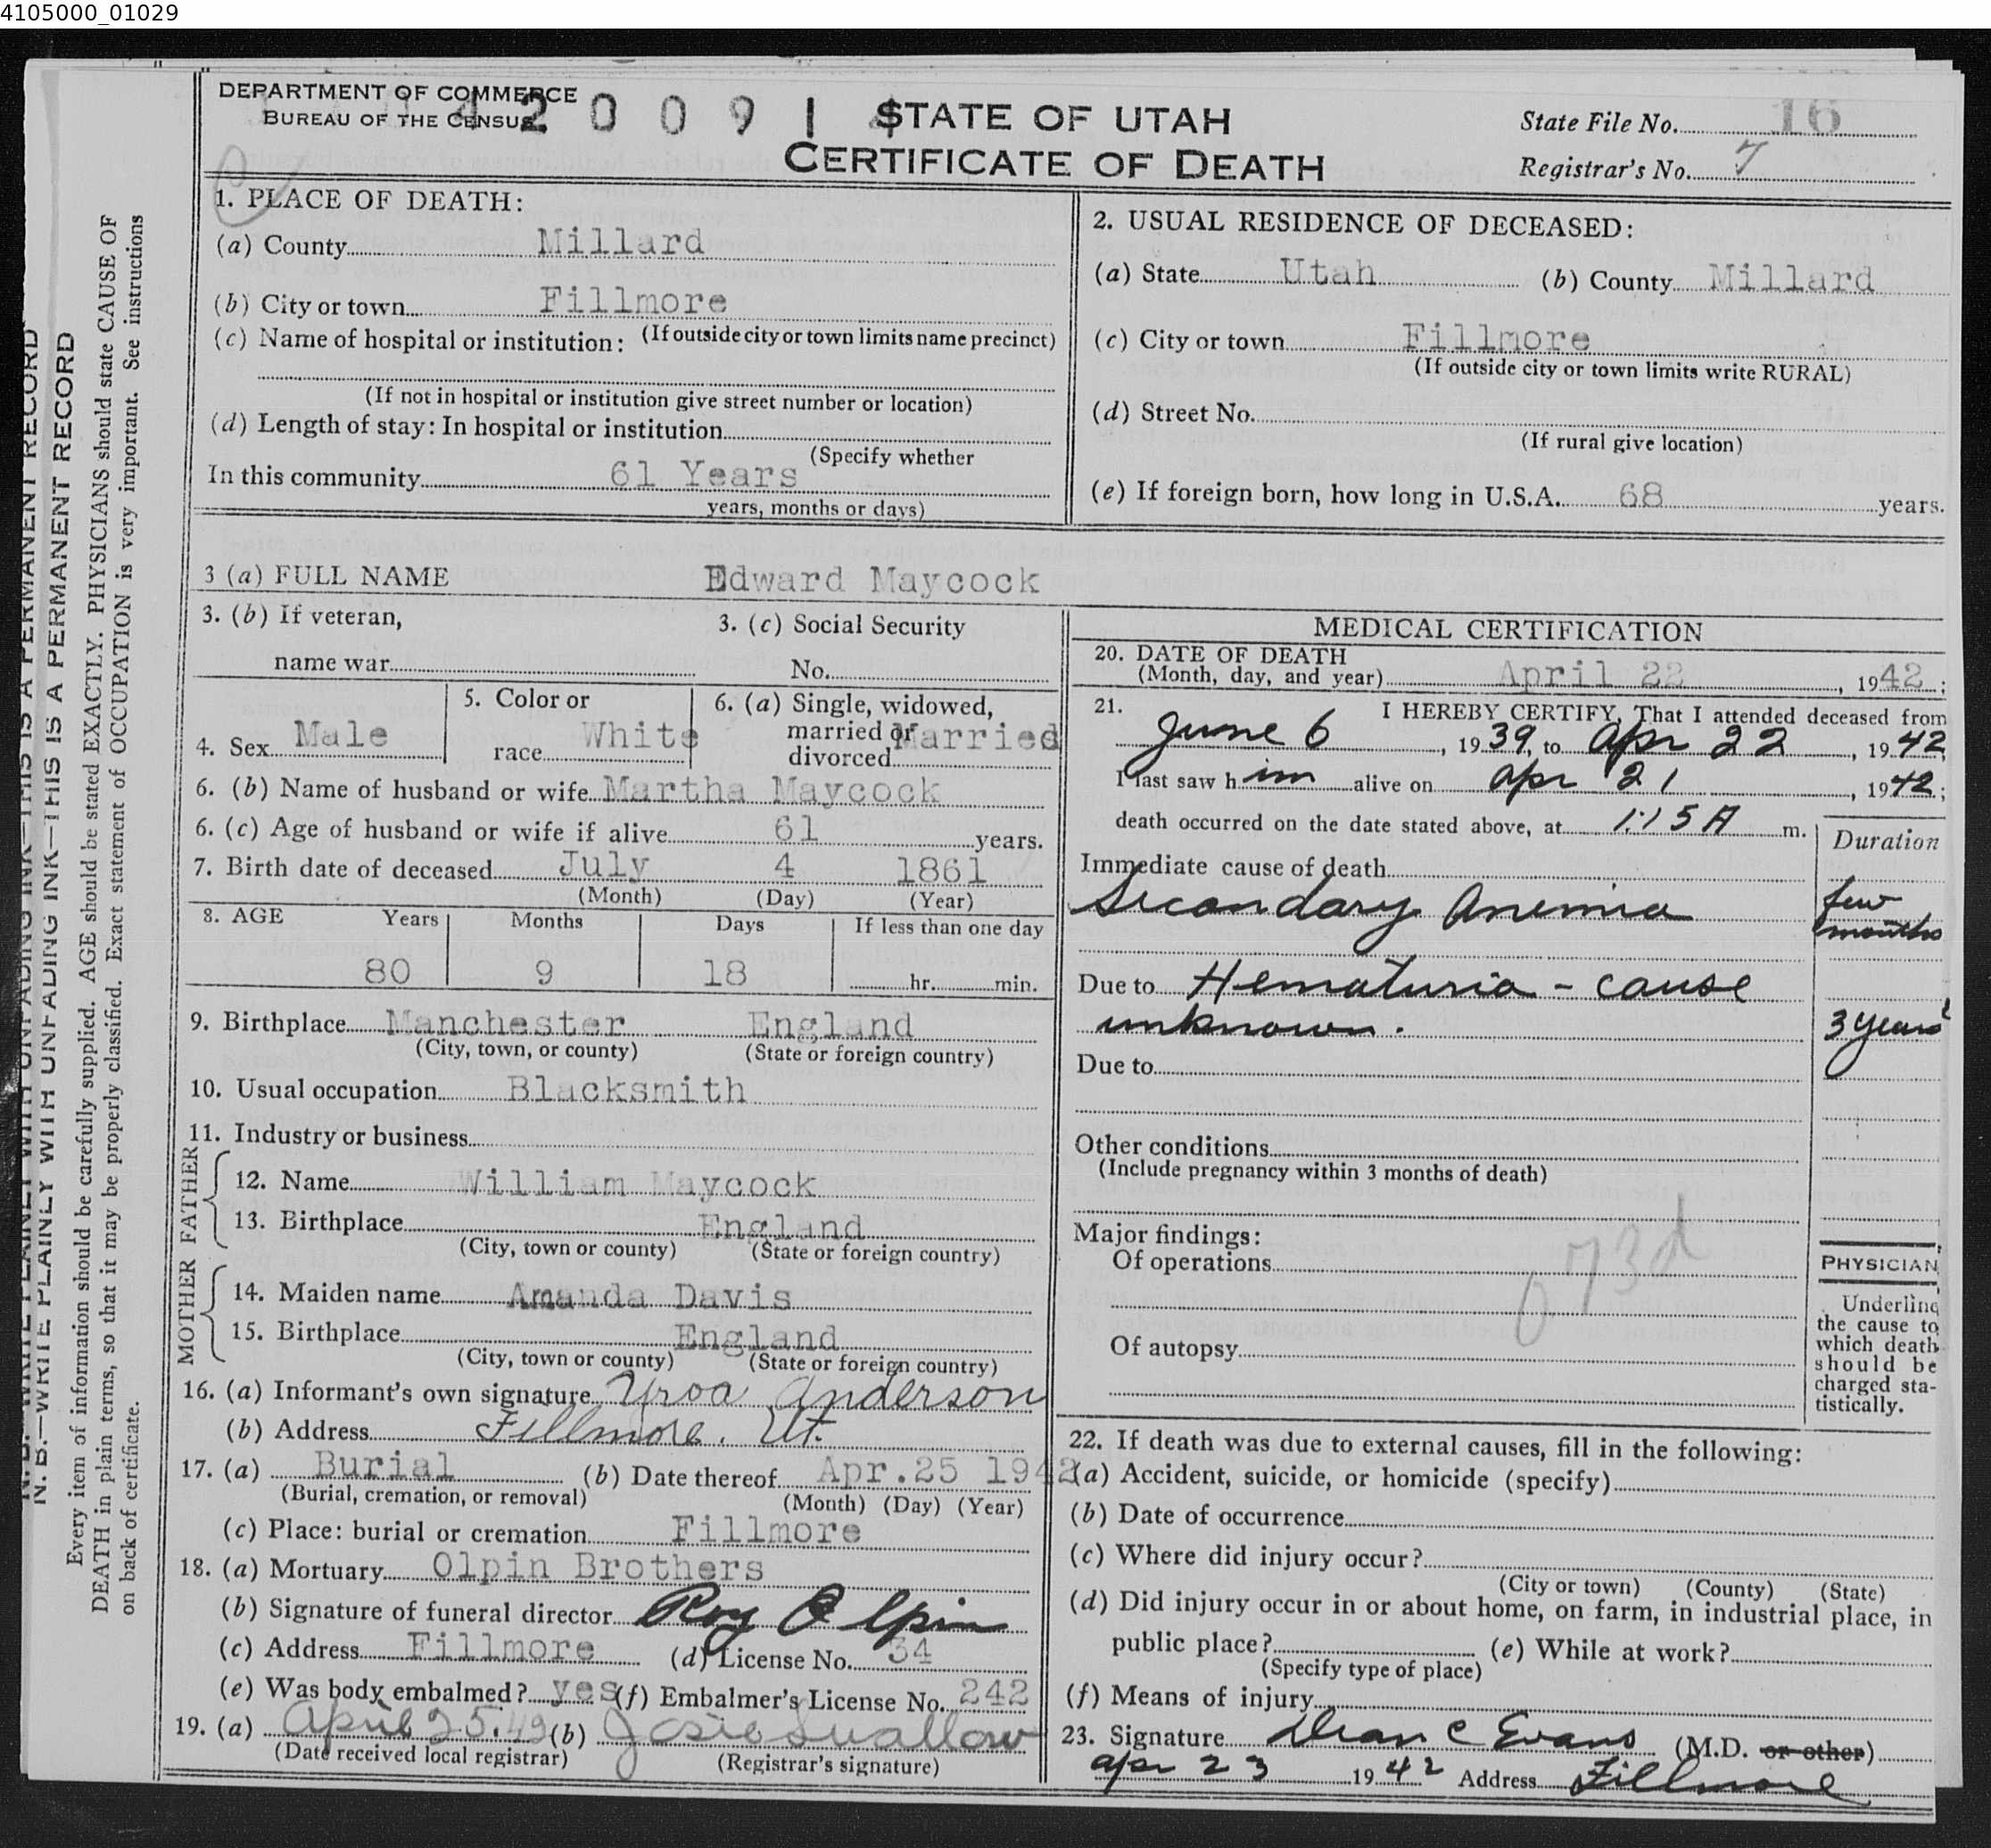 4105000_01029
DEPARTMENT OF COMMERCE
BUREAU OF THE CENSUS
STATE OF UTAH
CERTIFICATE OF DEATH
State File No. 16
Registrar's No. 7
1. PLACE OF DEATH:
(a) County Millard
(b) City or town Fillmore
(If outside city or town limits name precinct)
(c) Name of hospital or institution:
(If not in hospital or institution give street number or location)
(d) Length of stay: In hospital or institution
(Specify whether
In this community 61 Years
years, months or days)
2. USUAL RESIDENCE OF DECEASED:
(a) State Utah (b) County Millard
(c) City or town Fillmore
(If outside city or town limits write RURAL)
(d) Street No.
(If rural give location)
(e) If foreign born, how long in U.S.A. 68 years.
3 (a) FULL NAME Edward Maycock
3. (b) If veteran,
name war
3. (c) Social Security
No.
4. Sex Male
5. Color or
race White
6. (a) Single, widowed,
married or
divorced Married
6. (b) Name of husband or wife Martha Maycock
6. (c) Age of husband or wife if alive 61 years.
7. Birth date of deceased July 4 1861
(Month) (Day) (Year)
8. AGE Years Months Days If less than one day
80 9 18 hr. min.
9. Birthplace Manchester England
(City, town, or county) (State or foreign country)
10. Usual occupation Blacksmith
11. Industry or business
FATHER
12. Name William Maycock
13. Birthplace England
(City, town or county) (State or foreign country)
MOTHER
14. Maiden name Amanda Davis
15. Birthplace England
(City, town or county) (State or foreign country)
16. (a) Informant's own signature Anderson
(b) Address Fillmore. Ut.
17. (a) Burial (b) Date thereof Apr. 25 1942
(Burial, cremation, or removal) (Month) (Day) (Year)
(c) Place: burial or cremation Fillmore
18. (a) Mortuary Olpin Brothers
(b) Signature of funeral director Roy Olpin
(c) Address Fillmore (d) License No. 34
(e) Was body embalmed? yes (f) Embalmer's License No. 242
19. (a) April 25. (b) Josie Swallow
(Date received local registrar) (Registrar's signature)
MEDICAL CERTIFICATION
20. DATE OF DEATH
(Month, day, and year) April 22, 1942;
21. I HEREBY CERTIFY, That I attended deceased from
June 6, 1939, to Apr 22, 1942,
I last saw him alive on Apr 21, 1942;
death occurred on the date stated above, at 1:15 A m.
Duration
Immediate cause of death
Secondary Anemia few
months
Due to Hematuria - cause
unknown. 3 years
Due to
Other conditions
(Include pregnancy within 3 months of death)
Major findings:
Of operations
073d
Of autopsy
PHYSICIAN
Underline
the cause to
which death
should be
charged sta-
tistically.
22. If death was due to external causes, fill in the following:
(a) Accident, suicide, or homicide (specify)
(b) Date of occurrence
(c) Where did injury occur?
(City or town) (County) (State)
(d) Did injury occur in or about home, on farm, in industrial place, in
public place? (e) While at work?
(Specify type of place)
(f) Means of injury
23. Signature Dean C Evans (M.D. or other)
Apr 23 1942 Address Fillmore
N. B.—WRITE PLAINLY WITH UNFADING INK—THIS IS A PERMANENT RECORD
N. B.—WRITE PLAINLY WITH UNFADING INK—THIS IS A PERMANENT RECORD
Every item of information should be carefully supplied. AGE should be stated EXACTLY. PHYSICIANS should state CAUSE OF
DEATH in plain terms, so that it may be properly classified. Exact statement of OCCUPATION is very important. See instructions
on back of certificate.